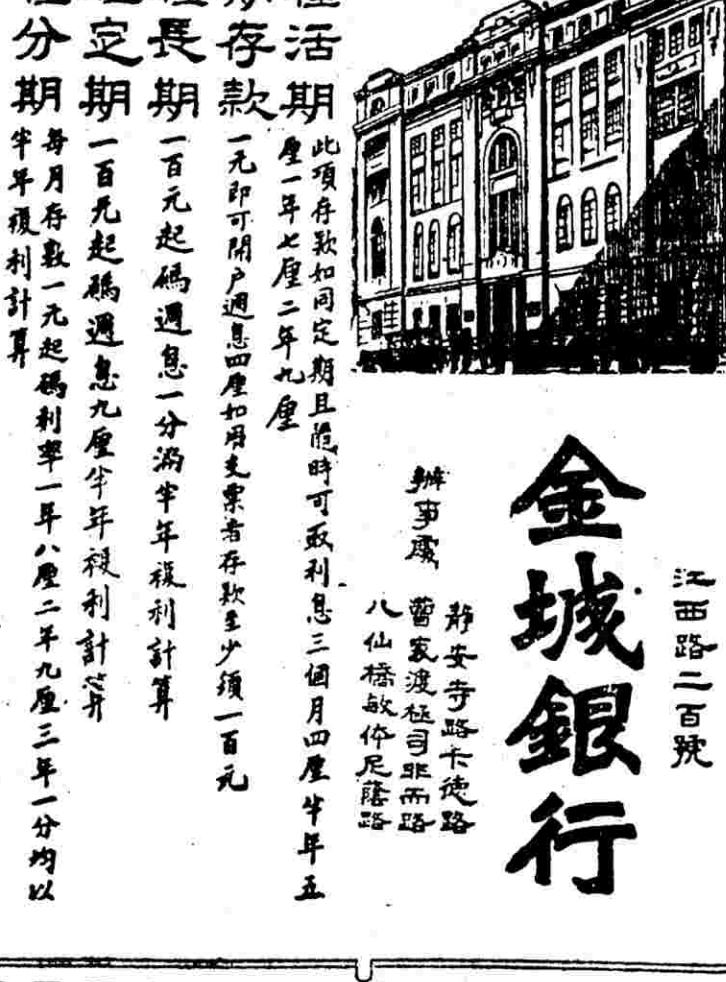 江西路二百號
金城銀行
辦事處
靜安寺路卡德路
曹家渡極司非而路
八仙橋敏体尼蔭路
活期
此項存款如同定期且隨時可取利息三個月四厘半年五
厘一年七厘二年九厘
存款
一元即可開户週息四厘如用支票者存款至少須一百元
長期
一百元起碼週息一分滿半年複利計算
定期
一百元起碼週息九厘半年複利計算
分期
每月存數一元起碼利率一年八厘二年九厘三年一分均以
半年複利計算